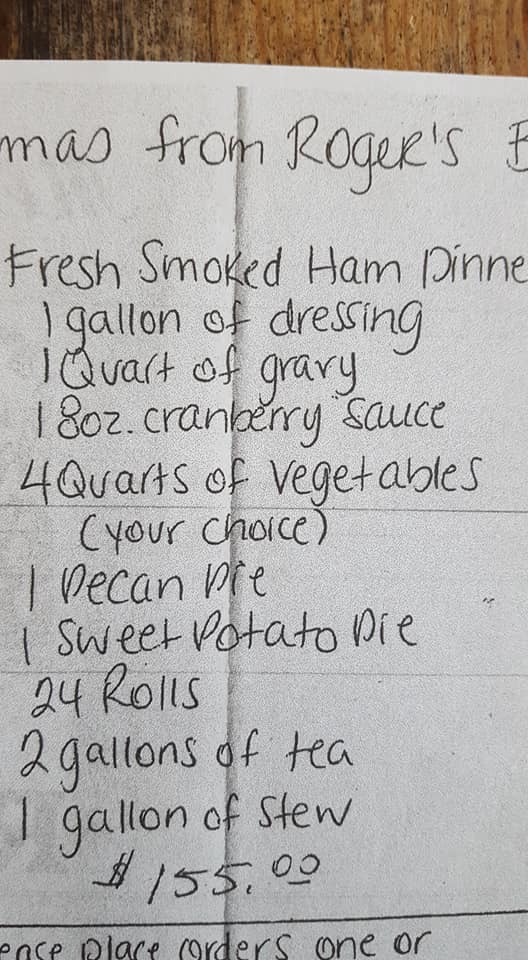 mas from Roger's
Fresh Smoked Ham Dinne
1 gallon of dressing
1 Quart of gravy
1 8oz. cranberry sauce
4 Quarts of vegetables
(your choice)
1 pecan pie
1 sweet potato pie
24 Rolls
2 gallons of tea
1 gallon of stew
$155.00
ease place orders one or